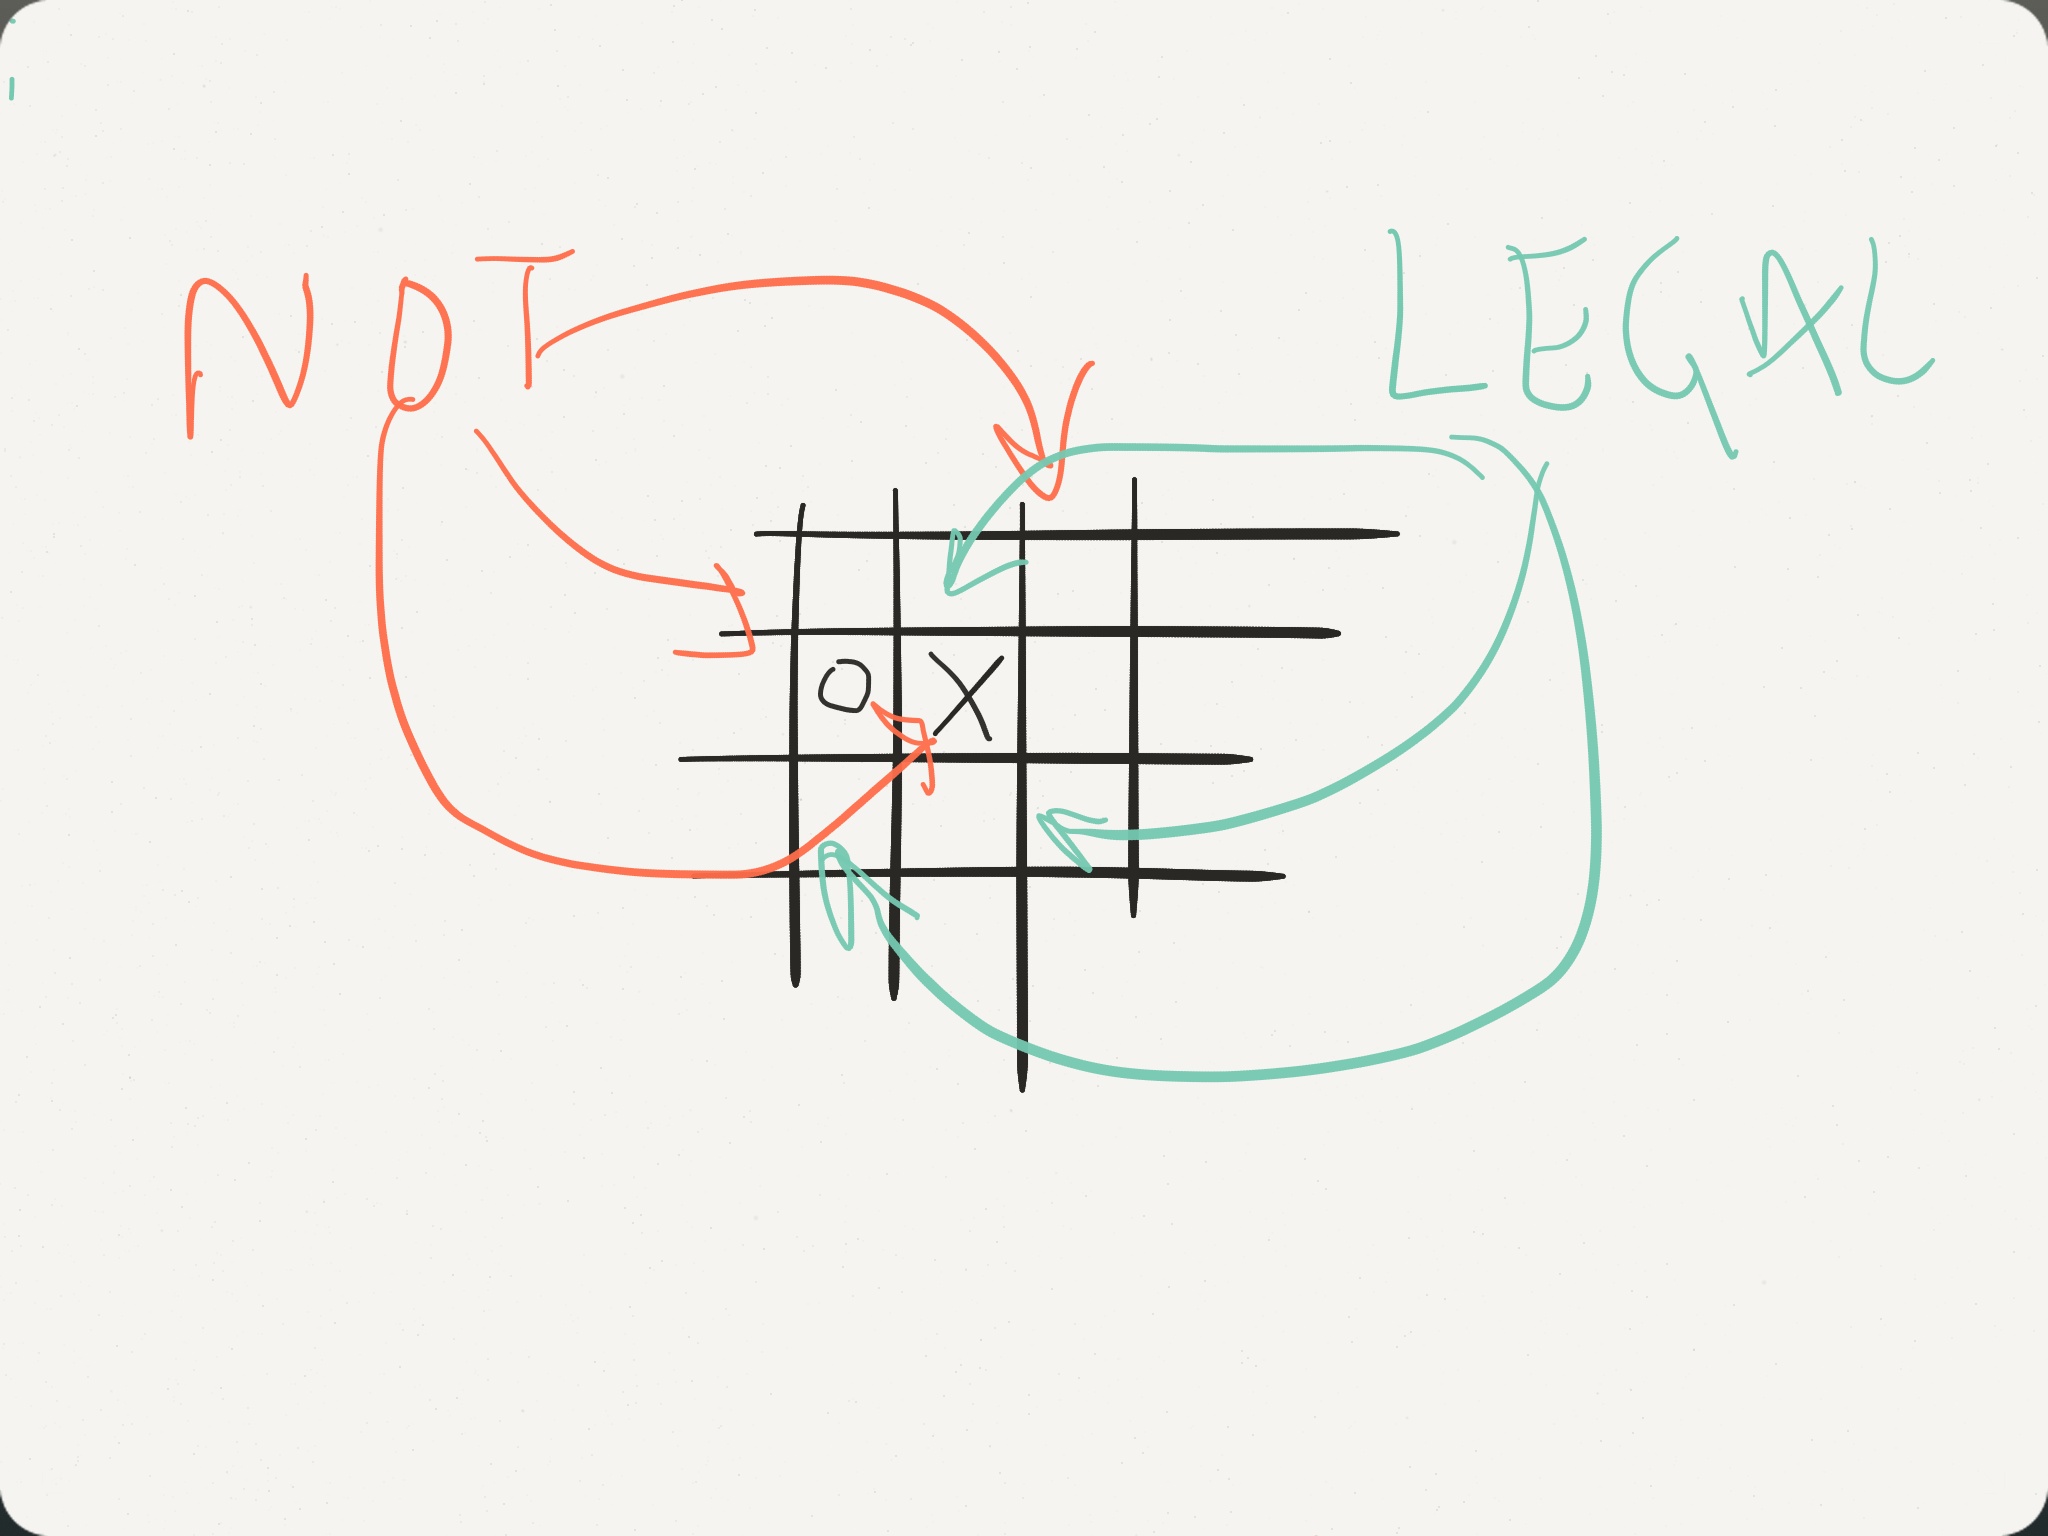 NOT LEGAL
O X